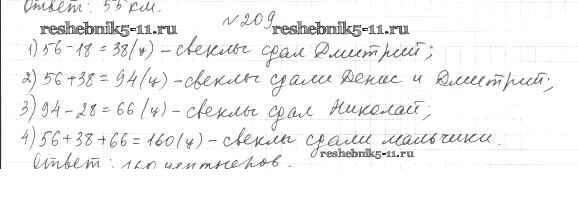 Ответ: 55 км.
№209
reshebnik5-11.ru reshebnik5-11.ru
1) 56-18=38(ц) - свеклы сдал Дмитрий;
2) 56+38=94(ц) - свеклы сдали Денис и Дмитрий;
3) 94-28=66(ц) - свеклы сдал Николай;
4) 56+38+66=160(ц) - свеклы сдали мальчики.
reshebnik5-11.ru
Ответ: 160 центнеров.